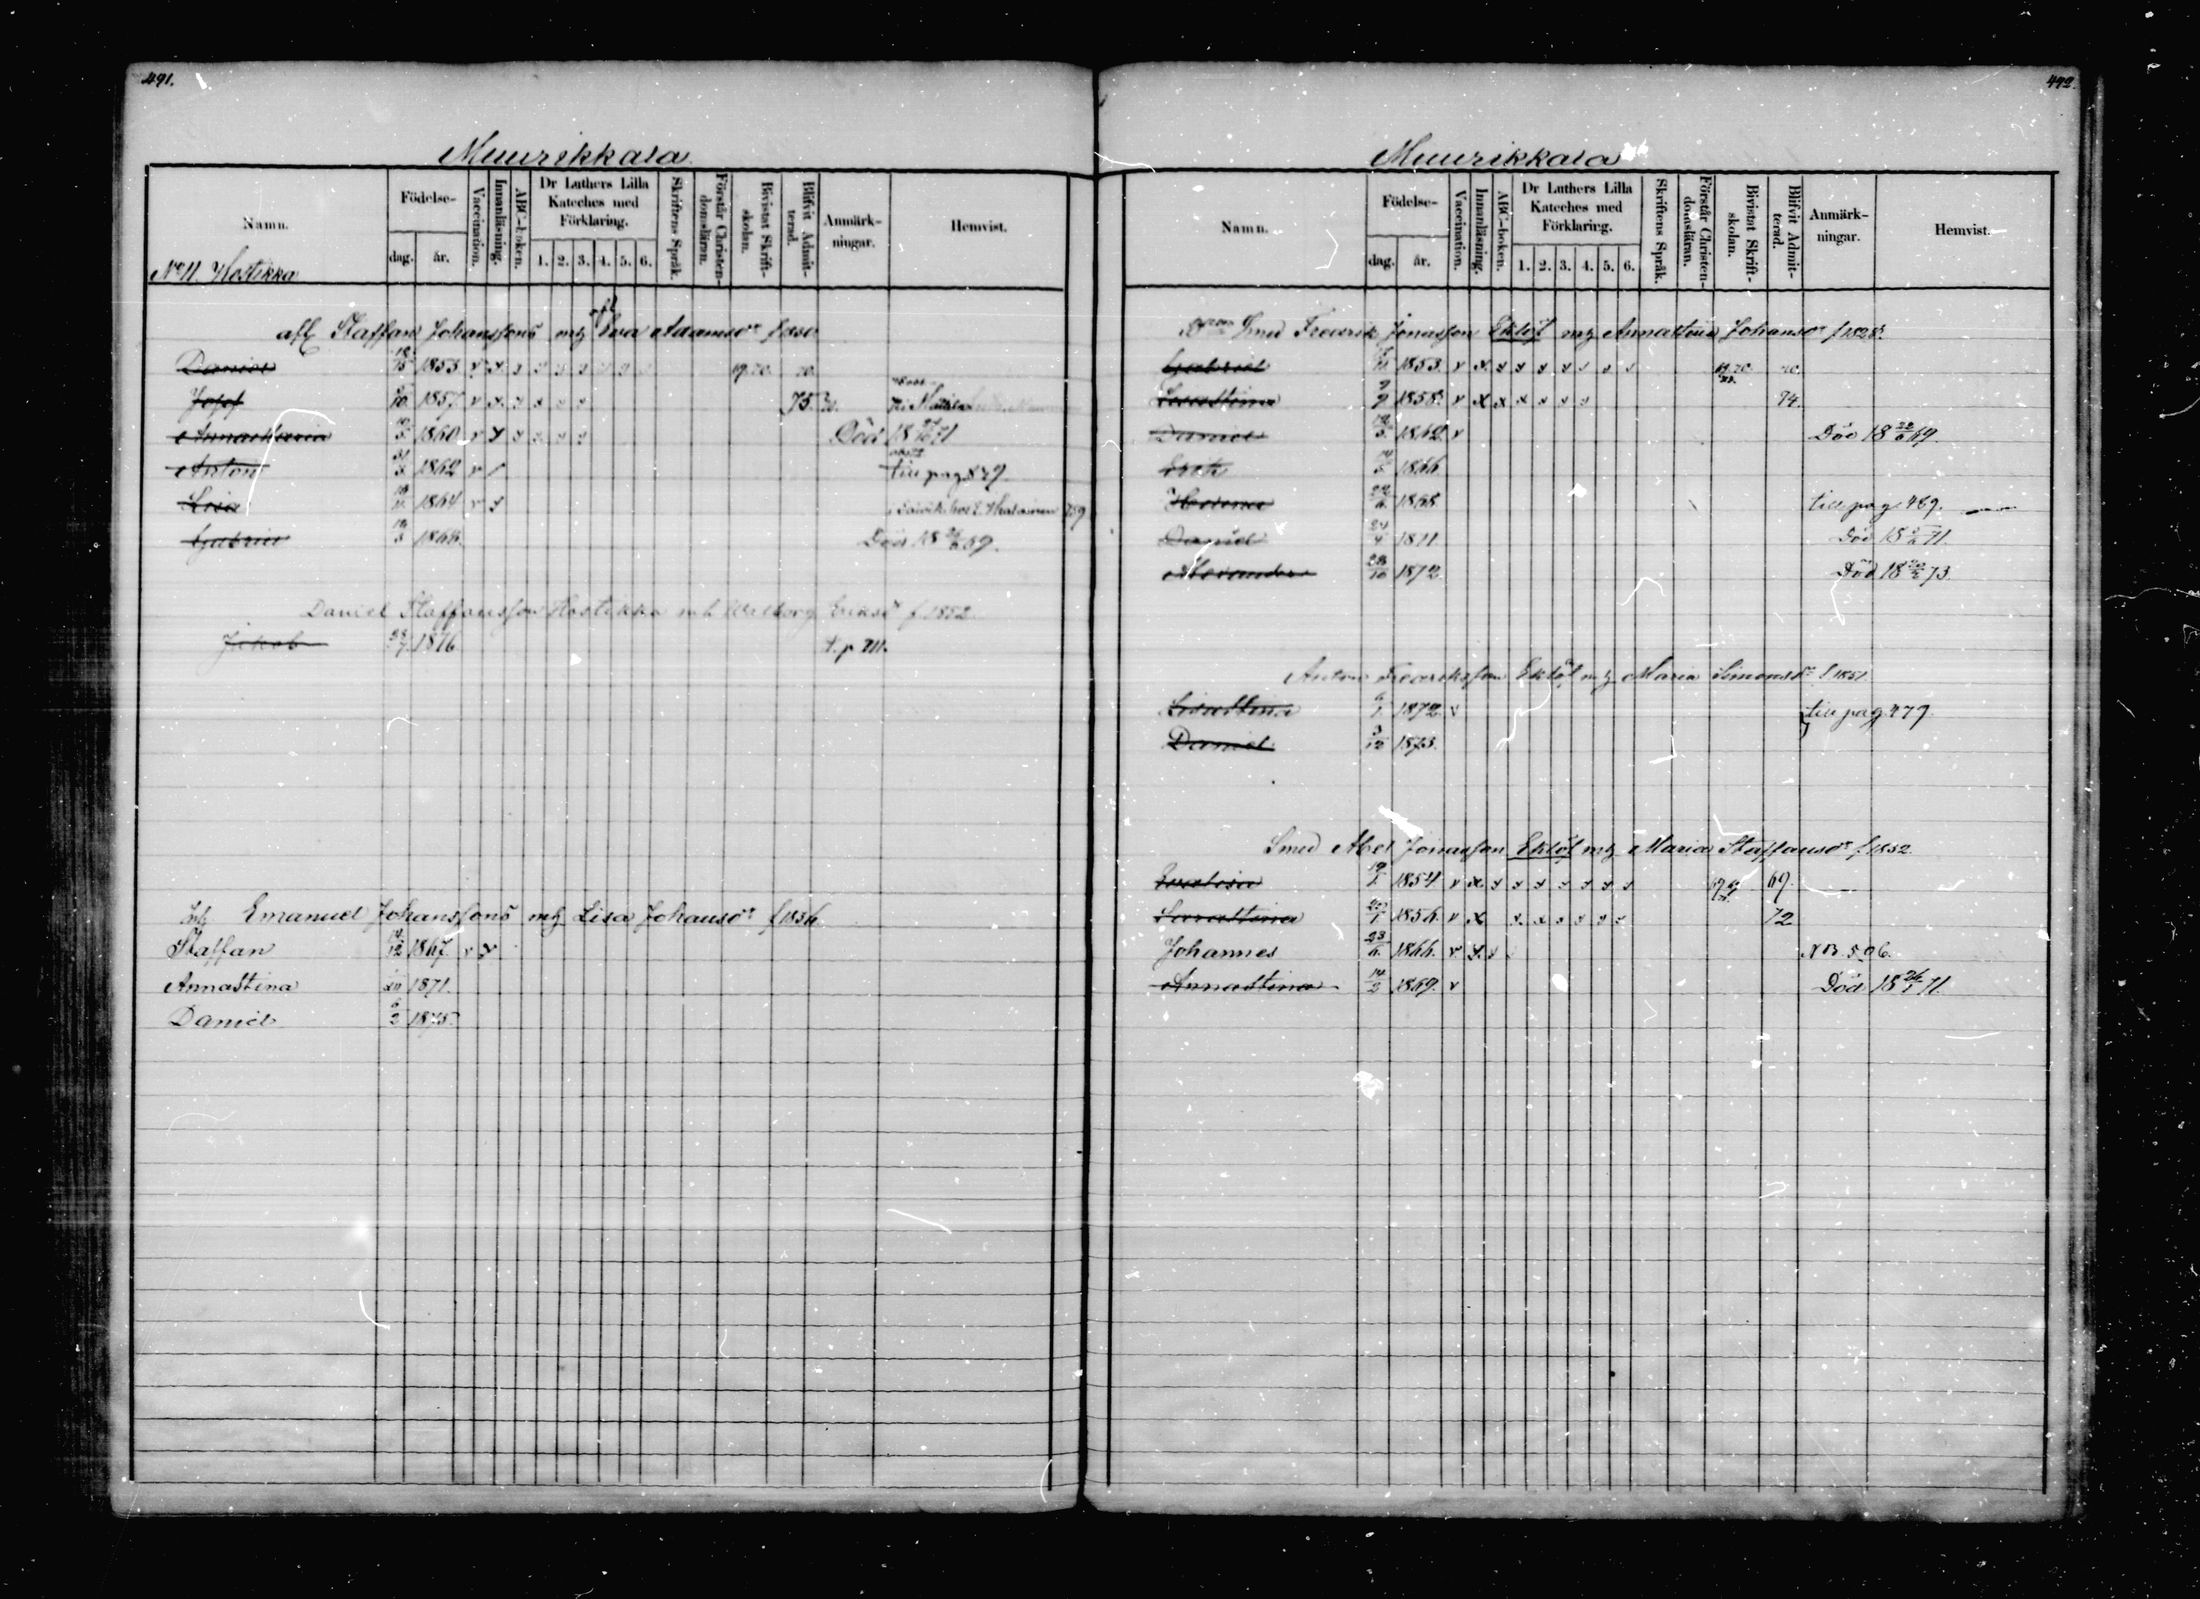 491.
Muurikkala
Namn. Födelse- dag. år. Vaccination. Innanläsning. ABC-boken. Dr Luthers Lilla Kateches med Förklaring. 1. 2. 3. 4. 5. 6. Skriftens Språk. Förstår Christen-domsläran. Bivistat Skrift-skolan. Blifvit Admit-terad. Anmärk-ningar. Hemvist.
No 11. Hostikka
afl Staffan Johanssons mh afl Eva Adamsdr
Daniel 1853 v x x x x x x x 70.
Josef 1857 v x x x x x 75
Anna Maria 1860 v x x x x x Död 18 71
Anton 31/3 1862 v / till pag 879.
Lisa 1864 v x
Gabriel 1866. Död 18 69.
Daniel Staffansson Hostikka m h Walborg Eriksdr f. 1852.
Jakob 1876 t. p 711.
Emanuel Johanssons mh Lisa Johansdr f 1836.
Staffan 14/12 1867. v x
Annastina 1871.
Daniel 6/2 1875.
492.
Muurikkala
Namn. Födelse- dag. år. Vaccination. Innanläsning. ABC-boken. Dr Luthers Lilla Kateches med Förklaring. 1. 2. 3. 4. 5. 6. Skriftens Språk. Förstår Christen-domsläran. Bivistat Skrift-skolan. Blifvit Admit-terad. Anmärk-ningar. Hemvist.
Smed Fredrik Jonasson Eklöf mh Annastina Johansdr f 1828.
Gabriel 1853. v x x x x x x x x 70.
Lisastina 9/9 1858. v x x x x x x 74.
Daniel 1862 v Död 18 22/6 69.
1866
22/6 1868 till pag 489.
Daniel 24/4 1871 Död 18 71.
Alexander 28/10 1872 Död 18 73.
Anton Fredriksson Eklöf mh Maria Simonsdr f 1851
Lisastina 6/1 1872 v till pag. 479.
Daniel 3/12 1873.
Smed Abel Jonasson Eklöf mh Maria Staffansdr f. 1832.
Evalisa 1854 v x x x x x x x x 69.
20/1 1856. v x x x x x x x 72
Johannes 23/6 1866. v x x NB 506.
Annastina 14/2 1869. v Död 18 26/1 71.